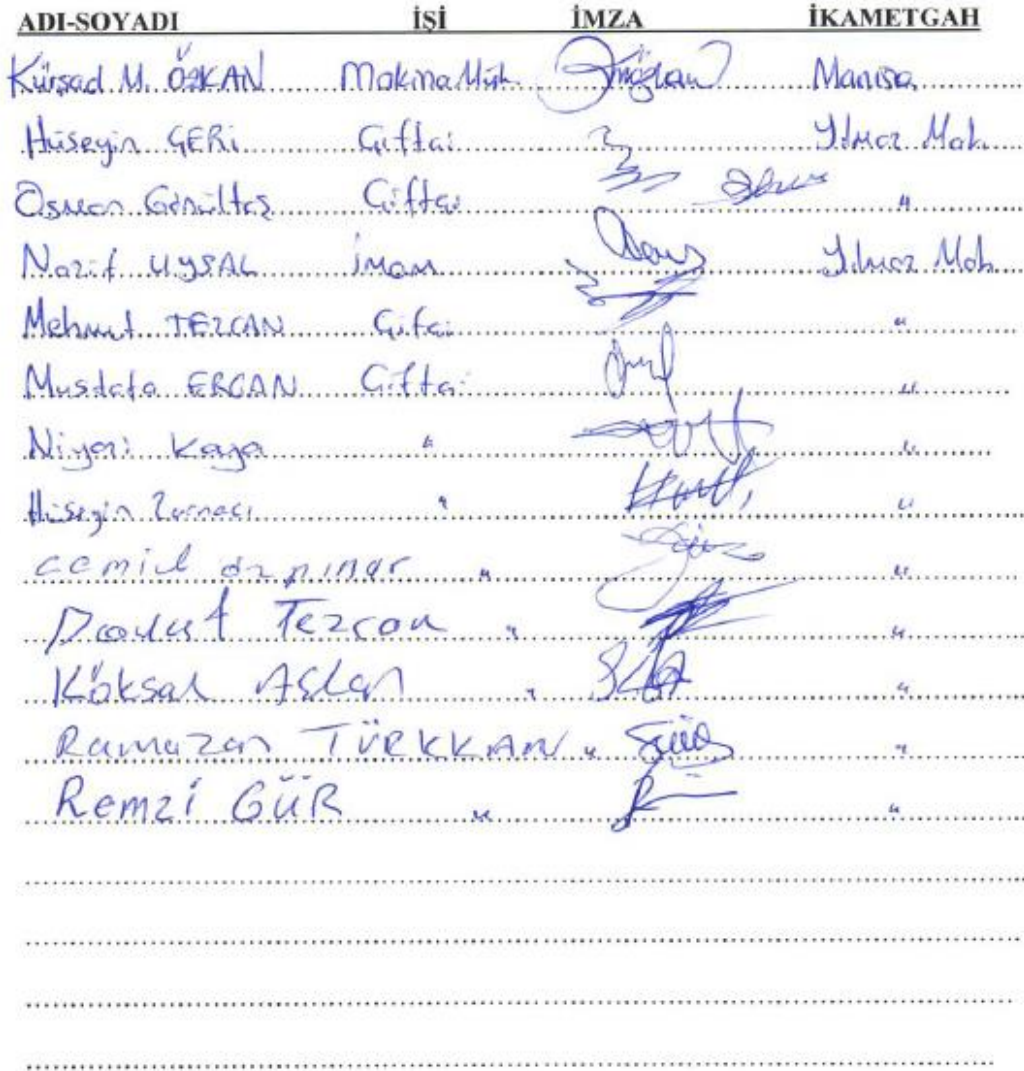 ADI-SOYADI İŞİ İMZA İKAMETGAH
Kürşad M. ÖZKAN Makina Müh. Manisa
Hüseyin GERİ Çiftçi Yılmaz Mah.
Osman Gönültaş Çiftçi "
Nazif UYSAL İmam Yılmaz Mah.
Mehmet TEZCAN Çifçi "
Mustafa ERCAN Çiftçi "
Niyazi Kaya " "
Hüseyin Zurnacı " "
cemil özpınar " "
Davut Tezcan " "
Köksal Aslan " "
Ramazan TÜRKKAN " "
Remzi GÜR " "